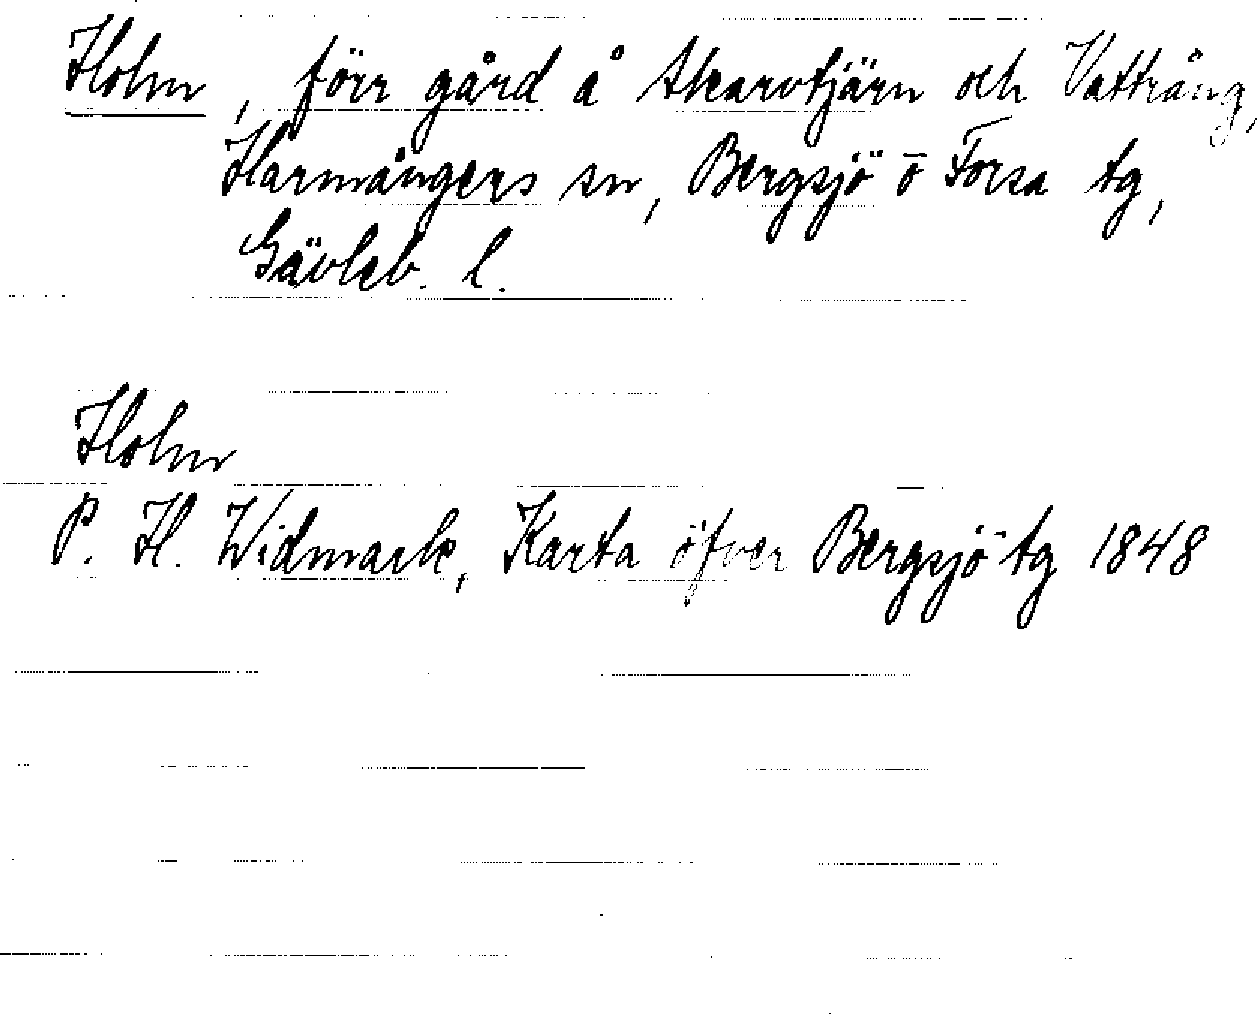 Holm, förr gård å Skarvtjärn och Vattrång,
Harmångers sn, Bergsjö o Forsa tg,
Gävleb. l.
Holm
P. H. Widmark, Karta öfver Bergsjö tg 1848